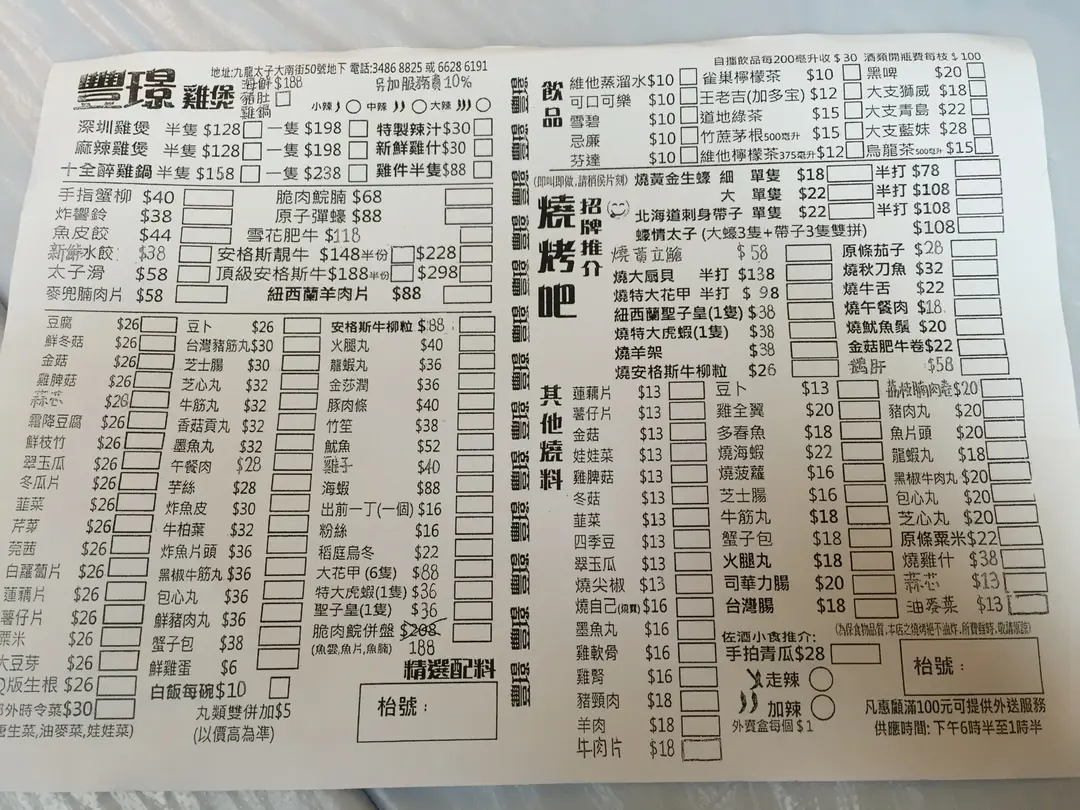 地址:九龍太子大南街50號地下 電話:3486 8825 或 6628 6191
豐璟 雞煲
海鮮$188
豬肚雞鍋
另加服務費10%
小辣 中辣 大辣
深圳雞煲 半隻 $128 一隻 $198 特製辣汁$30
麻辣雞煲 半隻 $128 一隻 $198 新鮮雞什$30
十全醉雞鍋 半隻 $158 一隻 $238 雞件半隻$88
手指蟹柳 $40 脆肉鯇腩 $68
炸響鈴 $38 原子彈蠔 $88
魚皮餃 $44 雪花肥牛 $118
新鮮水餃 $38 安格斯靚牛 $148半份 $228
太子滑 $58 頂級安格斯牛$188半份 $298
麥兜腩肉片 $58 紐西蘭羊肉片 $88
豆腐 $26 豆卜 $26 安格斯牛柳粒 $88
鮮冬菇 $26 台灣豬筋丸$30 火腿丸 $40
金菇 $26 芝士腸 $30 龍蝦丸 $36
雞脾菇 $26 芝心丸 $32 金莎潤 $36
蒜芯 $28 牛筋丸 $32 豚肉條 $40
霜降豆腐 $26 香菇貢丸 $32 竹笙 $38
鮮枝竹 $26 墨魚丸 $32 魷魚 $52
翠玉瓜 $26 午餐肉 $28 雞子 $40
冬瓜片 $26 芋絲 $28 海蝦 $88
韮菜 $26 炸魚皮 $30 出前一丁(一個) $16
芹菜 $26 牛柏葉 $32 粉絲 $16
莞茜 $26 炸魚片頭 $36 稻庭烏冬 $22
白蘿蔔片 $26 黑椒牛筋丸 $36 大花甲 (6隻) $88
蓮藕片 $26 包心丸 $36 特大虎蝦(1隻) $36
薯仔片 $26 鮮豬肉丸 $36 聖子皇(1隻) $36
粟米 $26 蟹子包 $38 脆肉鯇併盤 $208 188
大豆芽 $26 鮮雞蛋 $6 (魚雲,魚片,魚腩)
Q版生根 $26 白飯每碗$10 精選配料
時令菜$30 丸類雙併加$5
生菜,油麥菜,娃娃菜) (以價高為準)
枱號：
自攜飲品每200毫升收 $ 30 酒類開瓶費每枝 $ 100
飲品
維他蒸溜水$10 雀巢檸檬茶 $10 黑啤 $20
可口可樂 $10 王老吉(加多宝) $12 大支獅威 $18
雪碧 $10 道地綠茶 $15 大支青島 $22
忌廉 $10 竹蔗茅根500毫升 $15 大支藍妹 $28
芬達 $10 維他檸檬茶375毫升 $12 烏龍茶500毫升 $15
燒烤吧
招牌推介
(即叫即做,請稍侯片刻) 燒黃金生蠔 細 單隻 $18 半打 $78
大 單隻 $22 半打 $108
北海道刺身帶子 單隻 $22 半打 $108
蠔情太子 (大蠔3隻+帶子3隻雙拼) $108
燒黃立鯧 $58 原條茄子 $28
燒大扇貝 半打 $138 燒秋刀魚 $32
燒特大花甲 半打 $ 98 燒牛舌 $22
紐西蘭聖子皇(1隻) $38 燒午餐肉 $18
燒特大虎蝦(1隻) $38 燒魷魚鬚 $20
燒羊架 $38 金菇肥牛卷$22
燒安格斯牛柳粒 $26 鵝肝 $58
其他燒料
蓮藕片 $13 豆卜 $13 荔枝腩肉卷$20
薯仔片 $13 雞全翼 $20 豬肉丸 $20
金菇 $13 多春魚 $18 魚片頭 $20
娃娃菜 $13 燒海蝦 $22 龍蝦丸 $18
雞脾菇 $13 燒菠蘿 $16 黑椒牛肉丸 $20
冬菇 $13 芝士腸 $16 包心丸 $20
韮菜 $13 牛筋丸 $18 芝心丸 $20
四季豆 $13 蟹子包 $18 原條粟米$22
翠玉瓜 $13 火腿丸 $18 燒雞什 $38
燒尖椒 $13 司華力腸 $20 蒜芯 $13
燒自己(須買) $16 台灣腸 $18 油麥菜 $13
墨魚丸 $16
雞軟骨 $16
雞腎 $16
豬頸肉 $18
羊肉 $18
牛肉片 $18
佐酒小食推介:
手拍青瓜$28
走辣
加辣
外賣盒每個 $ 1
枱號：
凡惠顧滿100元可提供外送服務
供應時間: 下午6時半至1時半